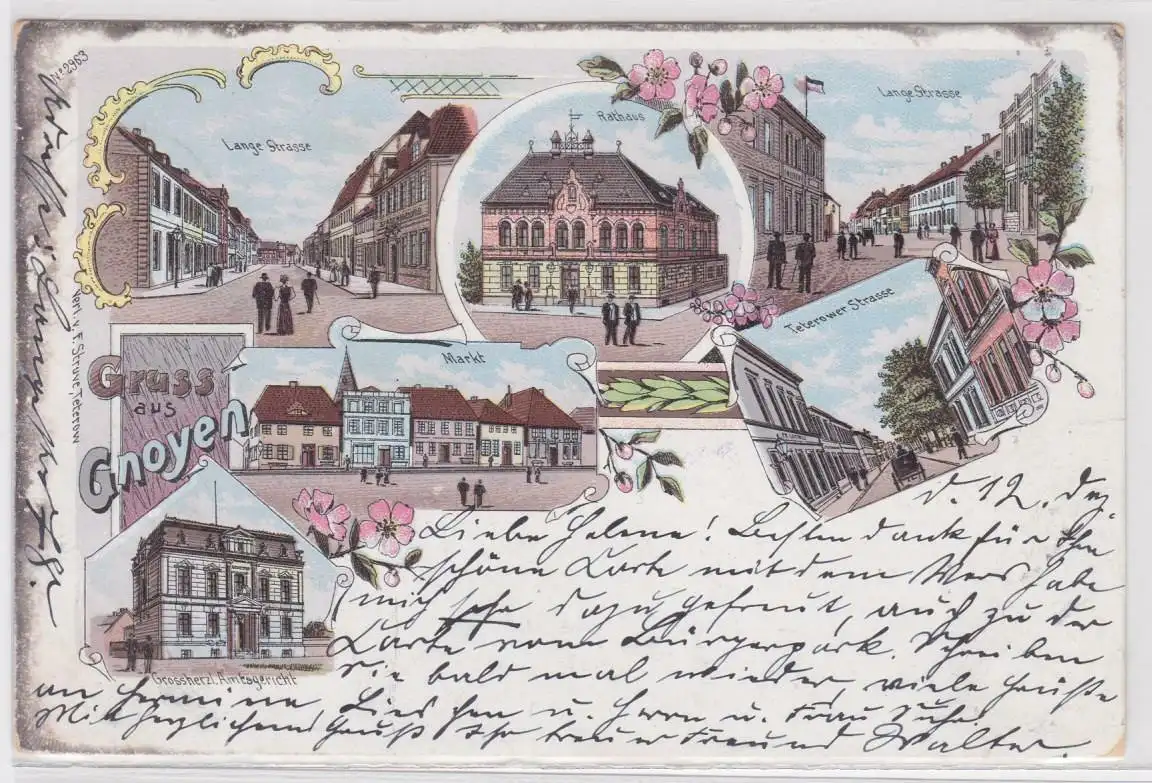 No 2963
Lange Strasse
Rathaus
Lange Strasse
Teterower Strasse
Markt
Gruss
aus
Gnoyen
Verl. v. F. Struve, Teterow
Grossherzl. Amtsgericht
d. 12. Dez.
Liebe Helene! Besten Dank für Ihre
schöne Karte mit dem Vers habe
mich sehr dazu gefreut, auch zu der
Karte vom Bürgerpark. Schreiben
Sie bald mal wieder, viele Grüße
an Hermine Lieschen u. Herrn u. Frau
Mit herzlichem Gruß Ihr treuer Freund Walter.